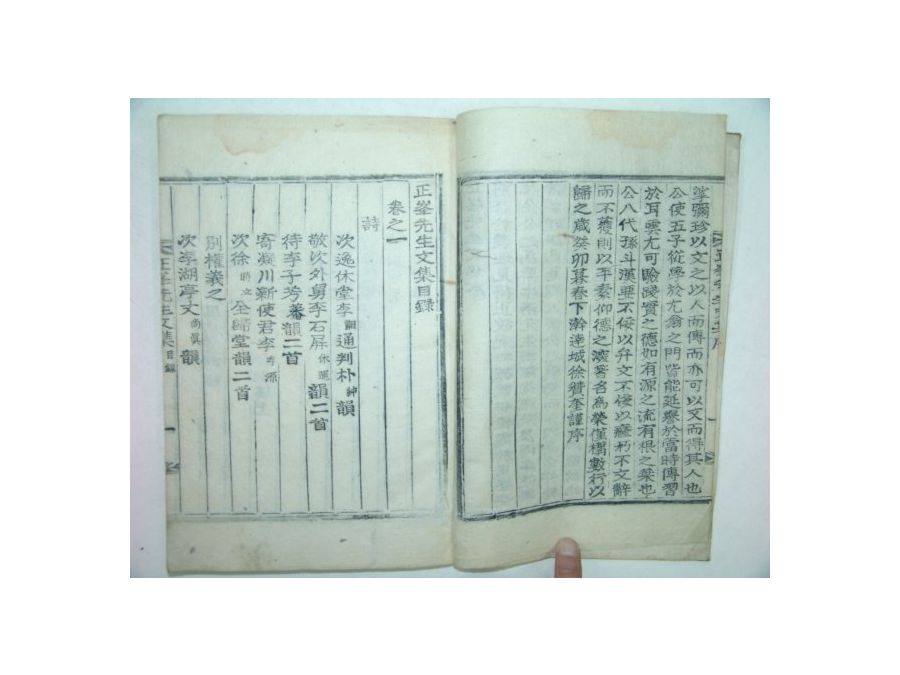 掌彌珍以文之以人而傳而亦可以文而得其人也
公使五子從學於尤翁之門皆能延譽於當時傳習
於耳雲尤可驗踐實之德如有源之流有根之葉也
公八代孫斗漢要不佞以弁文不佞以癃朽不文辭
而不獲則以平素仰德之深著名爲榮僅構數行以
歸之歲癸卯暮春下澣達城徐贊奎謹序
正峯先生文集目錄
卷之一
詩
次逸休堂李 通判朴紳韻
敬次外舅李石屛休運韻二首
待李子芳蕃韻二首
寄凝川新使君李 源
次徐時立全歸堂韻二首
別權義之
次李湖亭文尚眞韻
正峯先生文集目錄 一